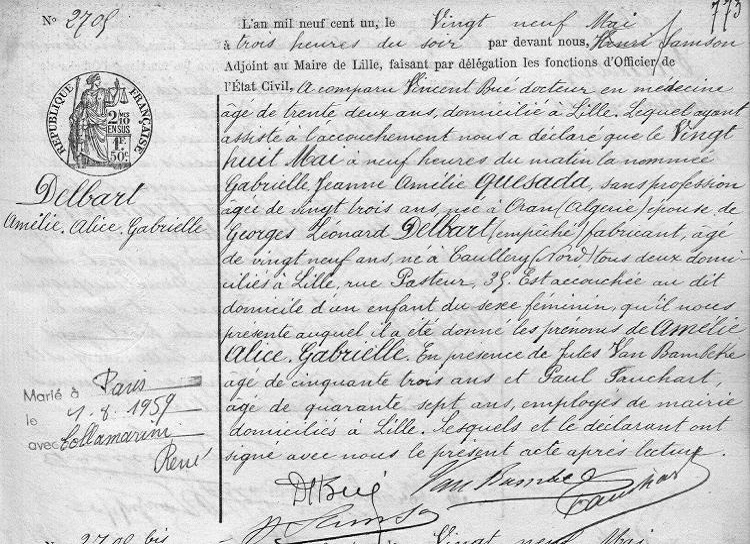 773
N° 2705
L'an mil neuf cent un, le Vingt neuf Mai
à trois heures du soir par devant nous, Henri Samson
Adjoint au Maire de Lille, faisant par délégation les fonctions d'Officier de
l'État Civil, A comparu Vincent Bué docteur en médecine
âgé de trente deux ans, domicilié à Lille. Lequel ayant
assisté à l'accouchement nous a déclaré que le Vingt
huit Mai à neuf heures du matin la nommée
Gabrielle Jeanne Amélie Quesada, sans profession
âgée de vingt trois ans née à Oran (Algérie) épouse de
Georges Léonard Delbart (empêché) fabricant, âgé
de vingt neuf ans, né à Caullery (Nord) tous deux domi-
ciliés à Lille, rue Pasteur, 35. Est accouchée au dit
domicile d'un enfant du sexe féminin, qu'il nous
présente auquel il a été donné les prénoms de Amélie
Alice. Gabrielle. En présence de Jules Van Bambeke
âgé de cinquante trois ans et Paul Fauchart,
âgé de quarante sept ans, employés de mairie
domiciliés à Lille. Lesquels et le déclarant ont
signé avec nous le présent acte après lecture.
RÉPUBLIQUE FRANÇAISE
2 MES
10
EN SUS
1F.
50C.
Delbart
Amélie. Alice. Gabrielle
Marié à Paris
le 1.8.1959
avec Collamarini
René
Dr Bué
Van Bambeke
Fauchart
H Samson
2705 bis
Vingt neuf Mai